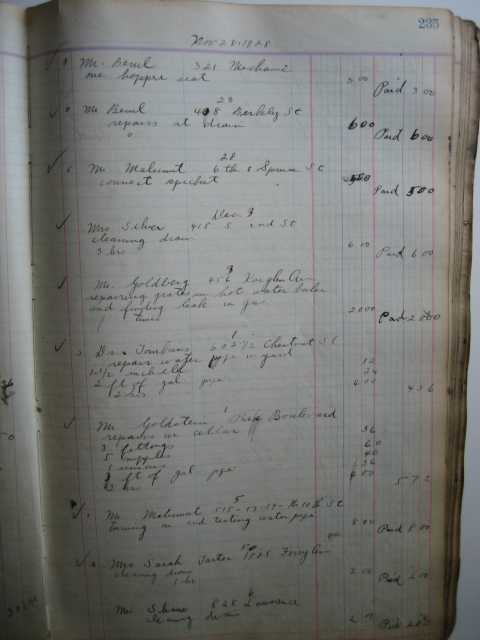 235
Nov 28-1928
Mr. Benil 321 Mechanic
one hopper seat 3 00 Paid 3 00
28
Mr Benil 408 Berkley St
repairs at drain 6 00 Paid 6 00
28
Mr. Malumut 6th & Spruce St
connect spicket 5 00 Paid 5 00
Dec 3
Mrs Silver 415 S 2nd St
cleaning drain
3 hrs 6 00 Paid 6 00
3
Mr. Goldberg 456
repairing grates in hot water boiler
and finding leak in gas
times 20 00 Paid 20 00
1
Dr. Tomkins 602 1/2 Chestnut St
repair water pipe in yard
12
2 ft of gal pipe 24
2 hrs 4 00 4 36
1
Mr. Goldstein Park Boulevard
repairs in cellar
3 fittings 36
5 nipples 60
1 unions 40
3 ft of gal pipe 36
2 hrs 4 00 5 72
5
Mr. Malumut 515-17-19- No 10th St
turning on and testing water pipe 8 00 Paid 8 00
5
Mrs Sarah Tarter 1825 Ferry Ave
cleaning drain
1 hr 2 00 Paid 2 00
6
Mr. Shane 828 Lawrence
cleaning drain 2 00 Paid 2 00